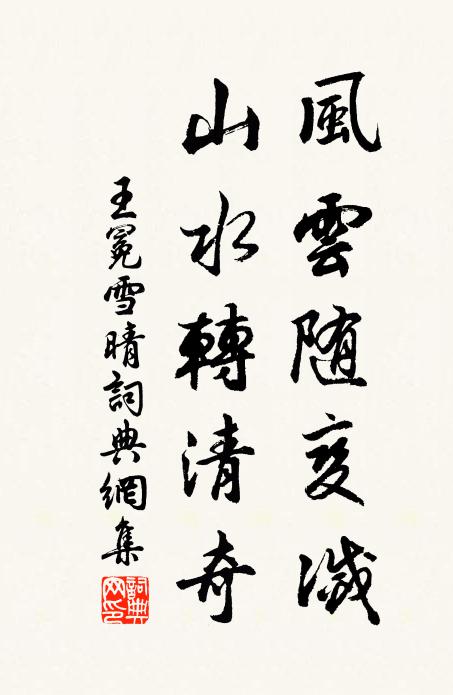 風雲随変滅
山水轉清奇
王冕雪晴詞典網集
詞典网印